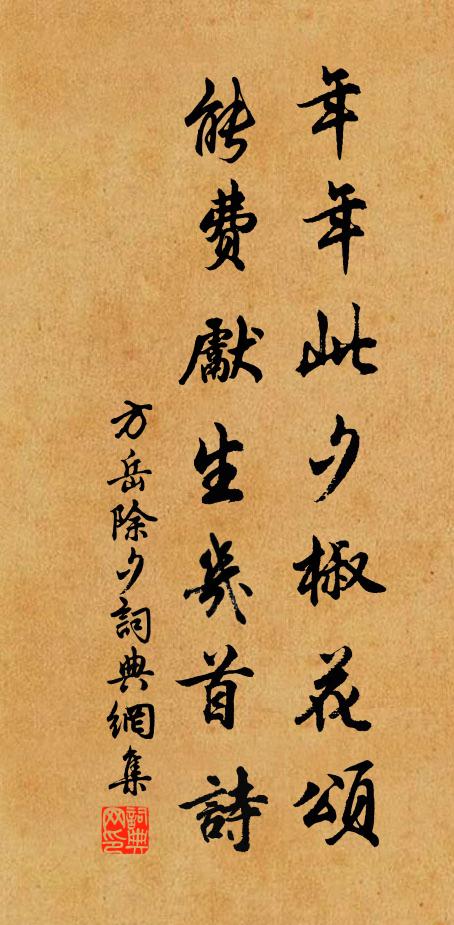 年年此夕椒花頌
能費獻生幾首詩
方岳除夕詞典網集
詞典网印